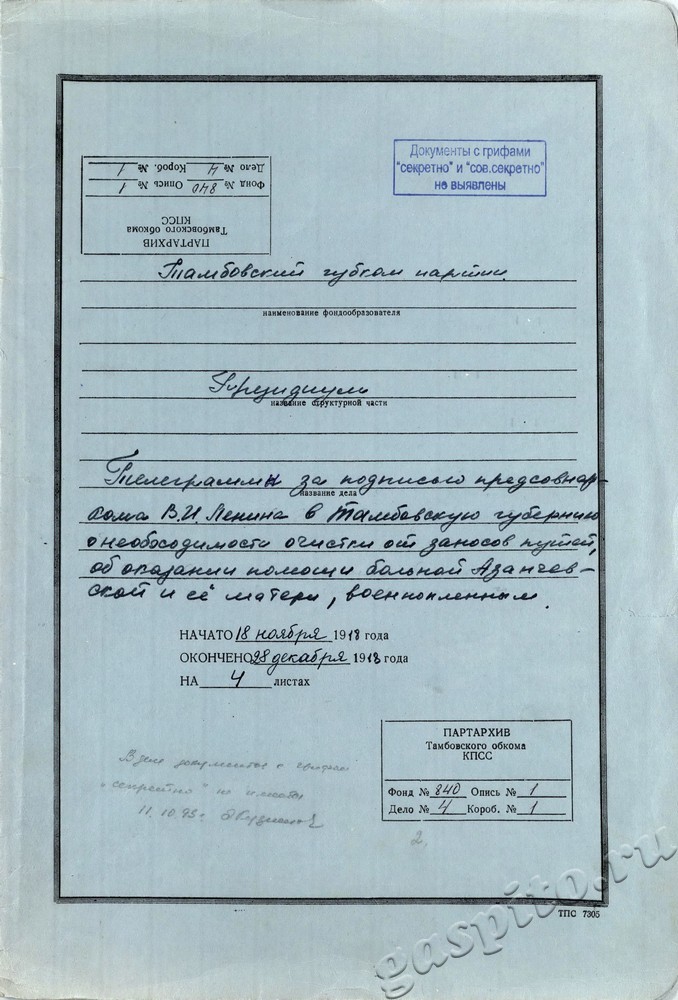 Документы с грифами
"секретно" и "сов.секретно"
не выявлены
ПАРТАРХИВ
Тамбовского обкома
КПСС
Фонд № 840 Опись № 1
Дело № 4 Короб. № 1
Тамбовский губком партии
наименование фондообразователя
Президиум
название структурной части
Телеграммы за подписью предсовнар-
название дела
кома В.И. Ленина в Тамбовскую губернию
о необходимости очистки от заносов путей,
об оказании помощи больной Азанчев-
ской и её матери, военнопленным.
НАЧАТО 18 ноября 1918 года
ОКОНЧЕНО 28 декабря 1918 года
НА 4 листах
В деле документов с грифом
"секретно" не имеется
11.10.93г.
ПАРТАРХИВ
Тамбовского обкома
КПСС
Фонд № 840 Опись № 1
Дело № 4 Короб. № 1
2.
ТПС 7305
gaspito.ru